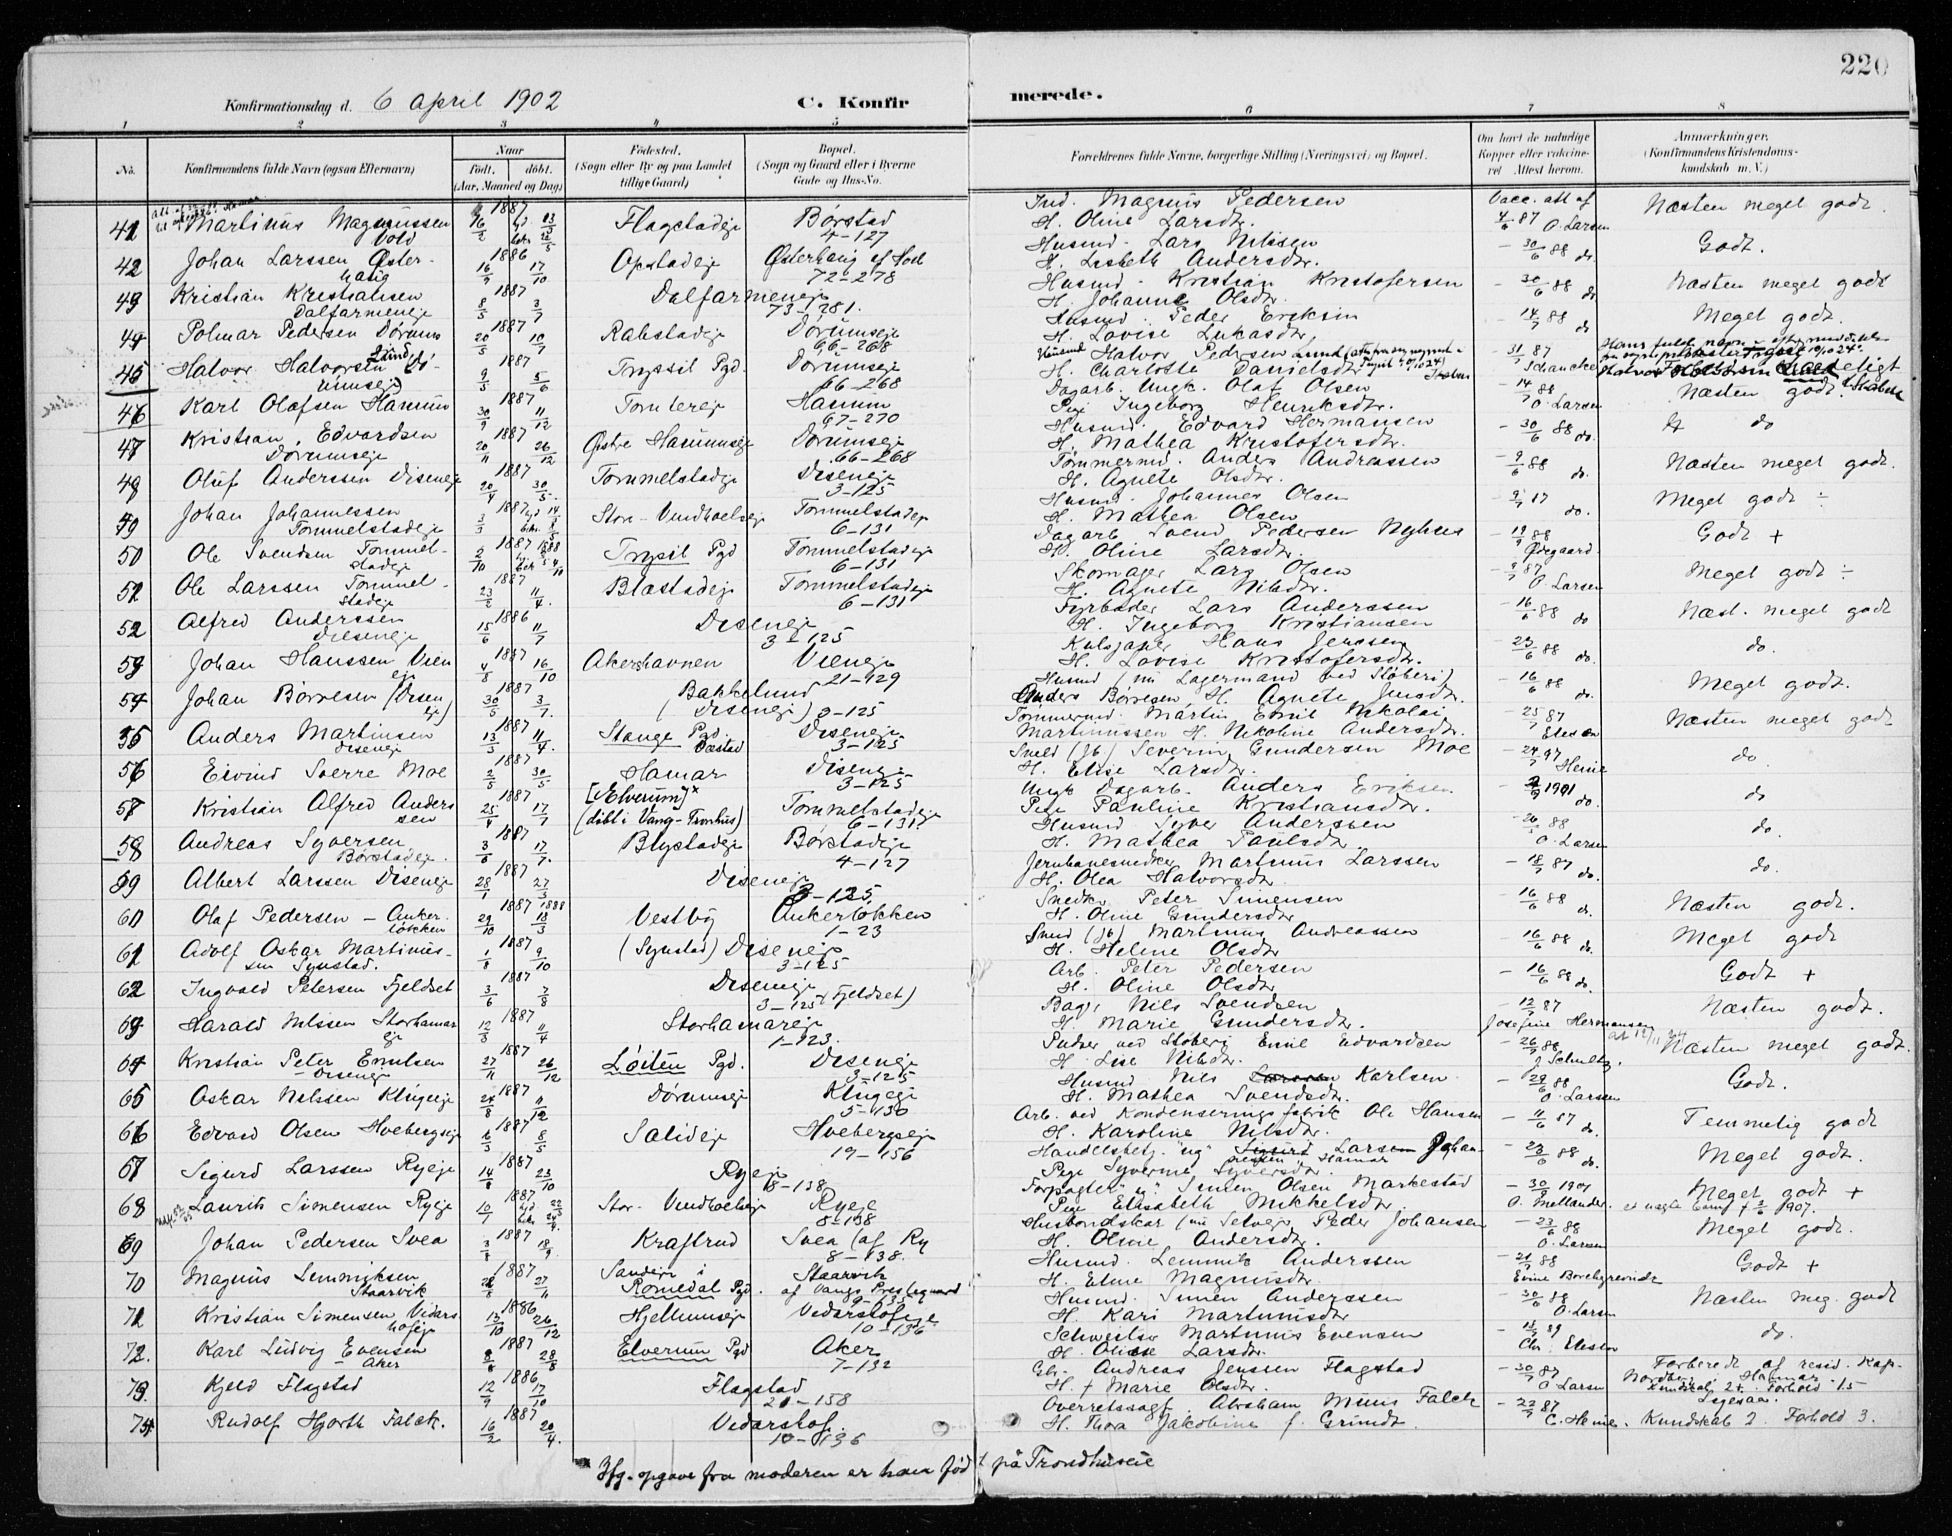 220
Konfirmationsdag d. 6 April 1902
C. Konfirmerede.
1 2 3 4 5 6 7 8
No. Konfirmandens fulde Navn (ogsaa Efternavn) Naar født. døbt. (Aar, Maaned og Dag) Fødested. (Sogn eller By og paa Landet tillige Gaard) Bopæl. (Sogn og Gaard eller i Byerne Gade og Hus-No. Forældrenes fulde Navne, borgerlige Stilling (Næringsvei) og Bopæl. Om havt de naturlige Kopper eller vaccineret Attest herom. Anmærkninger. (Konfirmandens Kristendomskundskab m. V.)
41 Martinus Magnussen Vold 1887 16/2 13/3 Flagstadeje Børstad 4-127 Ind. Magnus Pedersen H. Oline Larsdtr. Vacc. att af 4/6 87 O. Larsen Næsten meget godt.
42 Johan Larssen Østerhaug 1886 16/9 17/10 Opstadeje Østerhaug 72-278 Husmd. Lars Nilssen H. Lisbeth Andersdtr. 30/6 88 do. Godt.
43 Kristian Kristiansen Dalfarmeneje 1887 8/5 3/7 Dalfarmeneje 73-281. Husmd. Kristian Kristofersen H. Johanne Olsdtr. 30/6 88 do. Næsten meget godt
44 Polmar Pedersen Dørums 1887 20/5 10/7 Rabstadeje Dørumseje 66-268 Husmd. Peder Eriksen H. Lovise Lukasdtr. 14/7 88 do Meget godt.
45 Halvor Halvorsen Lund Dørumseje 1887 9/3 5/6 Trysil Pgd. Dørumseje 66-268 Husmd Halvor Pedersen Lund H. Charlotte Danielsdtr 31/7 87
46 Karl Olafsen Hamum 1887 30/9 11/12 Tomtereje Hamum 67-270 Dagarb. Ungk. Olaf Olsen Pige Ingeborg Henriksdtr. 14/7 88 O. Larsen Næsten godt.
47 Kristian Edvardsen Dørumseje 1887 20/11 26/12 Østre Hamumseje Dørumseje 66-268 Husmd. Edvard Hermansen H. Mathea Kristofersdtr. 30/6 88 do. do
48 Oluf Anderssen Diseneje 1887 20/4 30/5 Tommelstadeje Diseneje 3-125 Tømmermd. Anders Andreassen H. Agnete Olsdtr. 9/6 88 do. Næsten meget godt.
49 Johan Johannessen Tommelstadeje 1887 3/3 Store-Vindhoelseje Tommelstadeje 6-131 Husmd. Johannes Olsen H. Mathea Olsen do. Meget godt ÷
50 Ole Svendsen Tommelstadeje 1887 2/10 Trysil Pgd Tommelstadeje 6-131 Dagarb Svend Pedersen Nyhus H. Oline Larsdtr. 19/9 88 Ødegaard Godt +
51 Ole Larssen Tommelstadeje 1887 23/2 11/4. Blæstadeje Tommelstadeje 6-131 Skomager Lars Olsen H. Agnete Nilsdtr. 87 O. Larsen Meget godt ÷
52 Alfred Anderssen Diseneje 1886 15/6 11/7 Diseneje 3-125 Fyrbøder Lars Anderssen H. Ingeborg Kristiansen 16/6 88 do Næst. meget godt
53 Johan Hanssen Vieneje 1887 4/8 16/10 Akershavnen Vieneje 21-429 Kulsjauer Hans Jenssen H. Lovise Kristofersdtr. 23/6 88 do. do.
54 Johan Børresen (Diseneje) 1887 30/5 3/7. Bakkelund (Diseneje) 3-125 Husmd (nu Lagermand ved Støberi) Anders Børresen, H. Agnete Jensdtr. 16/6 88 do. Meget godt.
55 Anders Martinsen Diseneje 1887 13/3 11/4. Stange Pgd. Diseneje 3-125 Tømmermd. Martin Emil Nikolai Martinussen H. Nikoline Andersdtr. 25/7 87 Næsten meget godt
56 Eivind Sverre Moe 1887 2/5 30/5 Hamar Diseneje 3-125 Smed (Jb) Severin Gundersen Moe H. Elise Larsdtr. 24/7 97 Heine do.
57 Kristian Alfred Andersen 1887 25/4 17/7 [Elverum]x (døbt i Vang-Tronhus) Tommelstadeje 6-131 Ungk Dagarb. Anders Eriksen Pige Pauline Kristiansdtr. 1901 do. do
58 Andreas Syversen Børstadeje 1887 3/6 17/7. Blystadeje Børstadeje 4-127 Husmd Syver Anderssen H. Mathea Paulsdtr 26/5 88 O. Larsen do.
59 Albert Larssen Diseneje 1887 28/1 27/3 Diseneje 3-125. Jernbanesnedker Martinus Larssen H. Olea Halvorsdtr. 18/7 87 do. do.
60 Olaf Pedersen - Ankerløkken 1887 1888 29/10 18/3 Vestby Ankerløkken 1-23 Snedk. Peter Simensen H. Oline Gundersdtr 16/6 88 do. Næsten godt.
61 Adolf Oskar Martinussen Synstad. 1887 1/8 9/10 (Synstad) Diseneje 3-125 Smed (Jb) Martinus Andreassen H. Helene Olsdtr 16/6 88 do. Meget godt
62 Ingvald Petersen Fjeldset 1887 3/6 7/8 Diseneje 3-125 (Fjeldset) Arb. Peter Pedersen H. Oline Olsdtr 16/6 88 do. Godt +
63 Harald Nilssen Storhamareje 1887 12/3 11/4 Storhamareje 1-23. Bager Nils Svendsen H. Marie Gundersdtr. 12/7 87 Josefine Hermansen Næsten godt.
64 Kristian Peter Emilsen Diseneje 1887 27/11 26/12 Løiten Pgd. Diseneje 3-125 Pudser ved Støberi Emil Edvardsen H. Lise Nilsdtr. 26/7 88 J. Schultz. Næsten meget godt.
65 Oskar Nilssen Klingeje 1887 24/8 11/12 Dørumseje Klingeje 5-130 Husmd Nils Larssen Karlsen H. Mathea Svendsdtr. 29/6 88 O. Larsen Godt.
66 Edvard Olsen Hvebergseje 1887 6/3 8/5 Salideje Hvebergseje 19-156 Arb. ved Kondenseringsfabrik Ole Hansen H. Karoline Nilsdtr. 11/6 87 do. Temmelig godt
67 Sigurd Larssen Ryeje 1887 14/8 23/10 Ryeje 8-138 Handelsbetj. "ug" Sigurd Larsen Johannessen Hamar Pige Syverine Syversdtr. 23/6 88 do. Meget godt.
68 Laurits Simensen Ryeje 1887 10/7 Stor-Vindhoelseje Ryeje 8-138 Forpagter "ug" Simen Olsen Markestad Pige Elisabeth Mikkelsdtr. 30/9 1901 O. Mellander. Meget godt +
69 Johan Pedersen Svea 1887 3/8 18/9. Kraftrud Svea (af Ry 8-138. Husbondskar (nu Selveje Peder Johansen H. Oline Andersdtr. 23/6 88 O. Larsen Meget godt.
70 Magnus Lemmiksen Staarvik 1887 27/11 Sandeje i Romedal Pgd. Staarvik af Vangs Prestegaard 9-135 Husmd. Lemmik Anderssen H. Eline Magnusdtr. 21/7 88 Evine Borchgrevinck Godt +
71 Kristian Simensen Vidarshofeje 1886 13/10 26/12 Hjellumseje Vidarshofeje 10-136 Husmd. Simen Anderssen H. Kari Martinusdtr 30/6 88 O. Larsen Næsten meg. godt
72. Karl Ludvig Evensen Aker 1887 8/8 28/8 Elverum Pgd Aker 7-132 Schweitser Martinus Evensen H. Olise Larsdtr. 89 Chr. Elester do.
73. Kjeld Flagstad 1886 12/9 17/10 Flagstad 21-158 Gbr. Andreas Jenssen Flagstad H. + Marie Olsdtr. 30/7 87 O. Larsen Forberedt af resid. Kap. Nordby i Hamar Kundskab 2+. Forhold 1.5
74. Rudolf Hjorth Falck. 1887 16/2 20/4. Vidarshof. 10-136 Overretssagf. Abraham Muus Falck H. Thora Jakobine f. Grundt. 22/7 87 C. Heine. Kundskab 2 Forhold 3.
Ifg. opgave fra moderen er han født på Trondhuseie